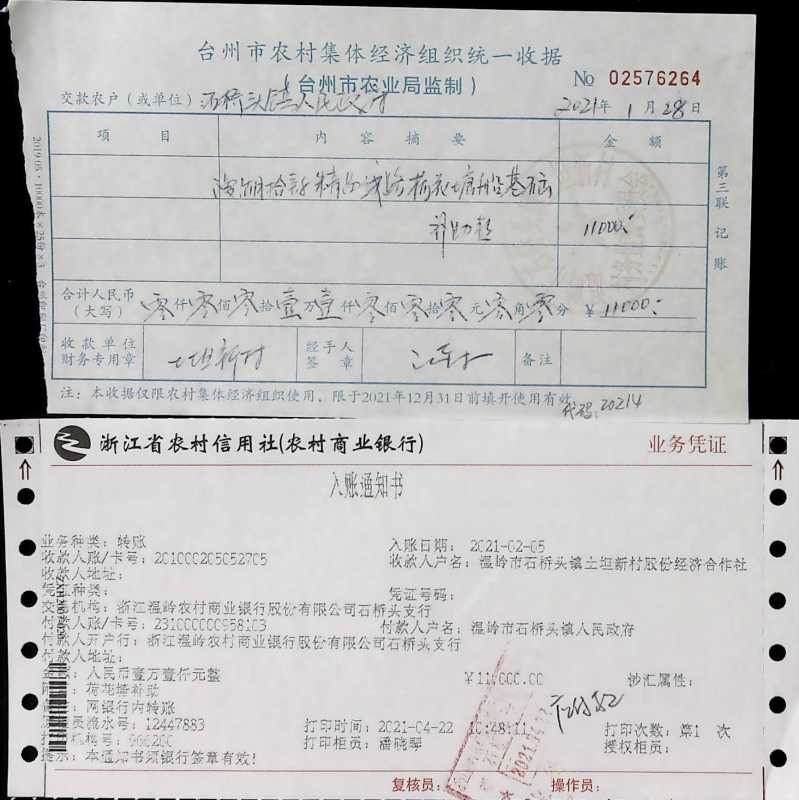 台州市农村集体经济组织统一收据
(台州市农业局监制)
No 02576264
交款农户(或单位) 石桥头镇人民政府
2021年 1月28日
项 目 内 容 摘 要 金 额
荷花塘
基础
补助款 11000.-
合计人民币
(大写) 零仟零佰零拾壹万壹仟零佰零拾零元零角零分 ¥11000.-
收款单位
财务专用章 土坦新村
经手人
签 章
备注
注:本收据仅限农村集体经济组织使用,限于2021年12月31日前填开使用有效
代码:20214
第三联 记账
浙江省农村信用社(农村商业银行)
业务凭证
入账通知书
业务种类:转账
入账日期: 2021-02-05
收款人账/卡号:201000205052705
收款人户名:温岭市石桥头镇土坦新村股份经济合作社
收款人地址:
凭证种类:
凭证号码:
交易机构:浙江温岭农村商业银行股份有限公司石桥头支行
付款人账/卡号:231000000958103
付款人户名:温岭市石桥头镇人民政府
付款人开户行:浙江温岭农村商业银行股份有限公司石桥头支行
付款人地址:
人民币壹万壹仟元整
¥11,000.00
涉汇属性:
荷花塘补助
网银行内转账
流水号:12447883
打印时间:2021-04-22 10:48:11
打印次数:第1 次
打印柜员:潘晓翠
授权柜员:
提示:本通知书须银行签章有效!
复核员:
操作员: